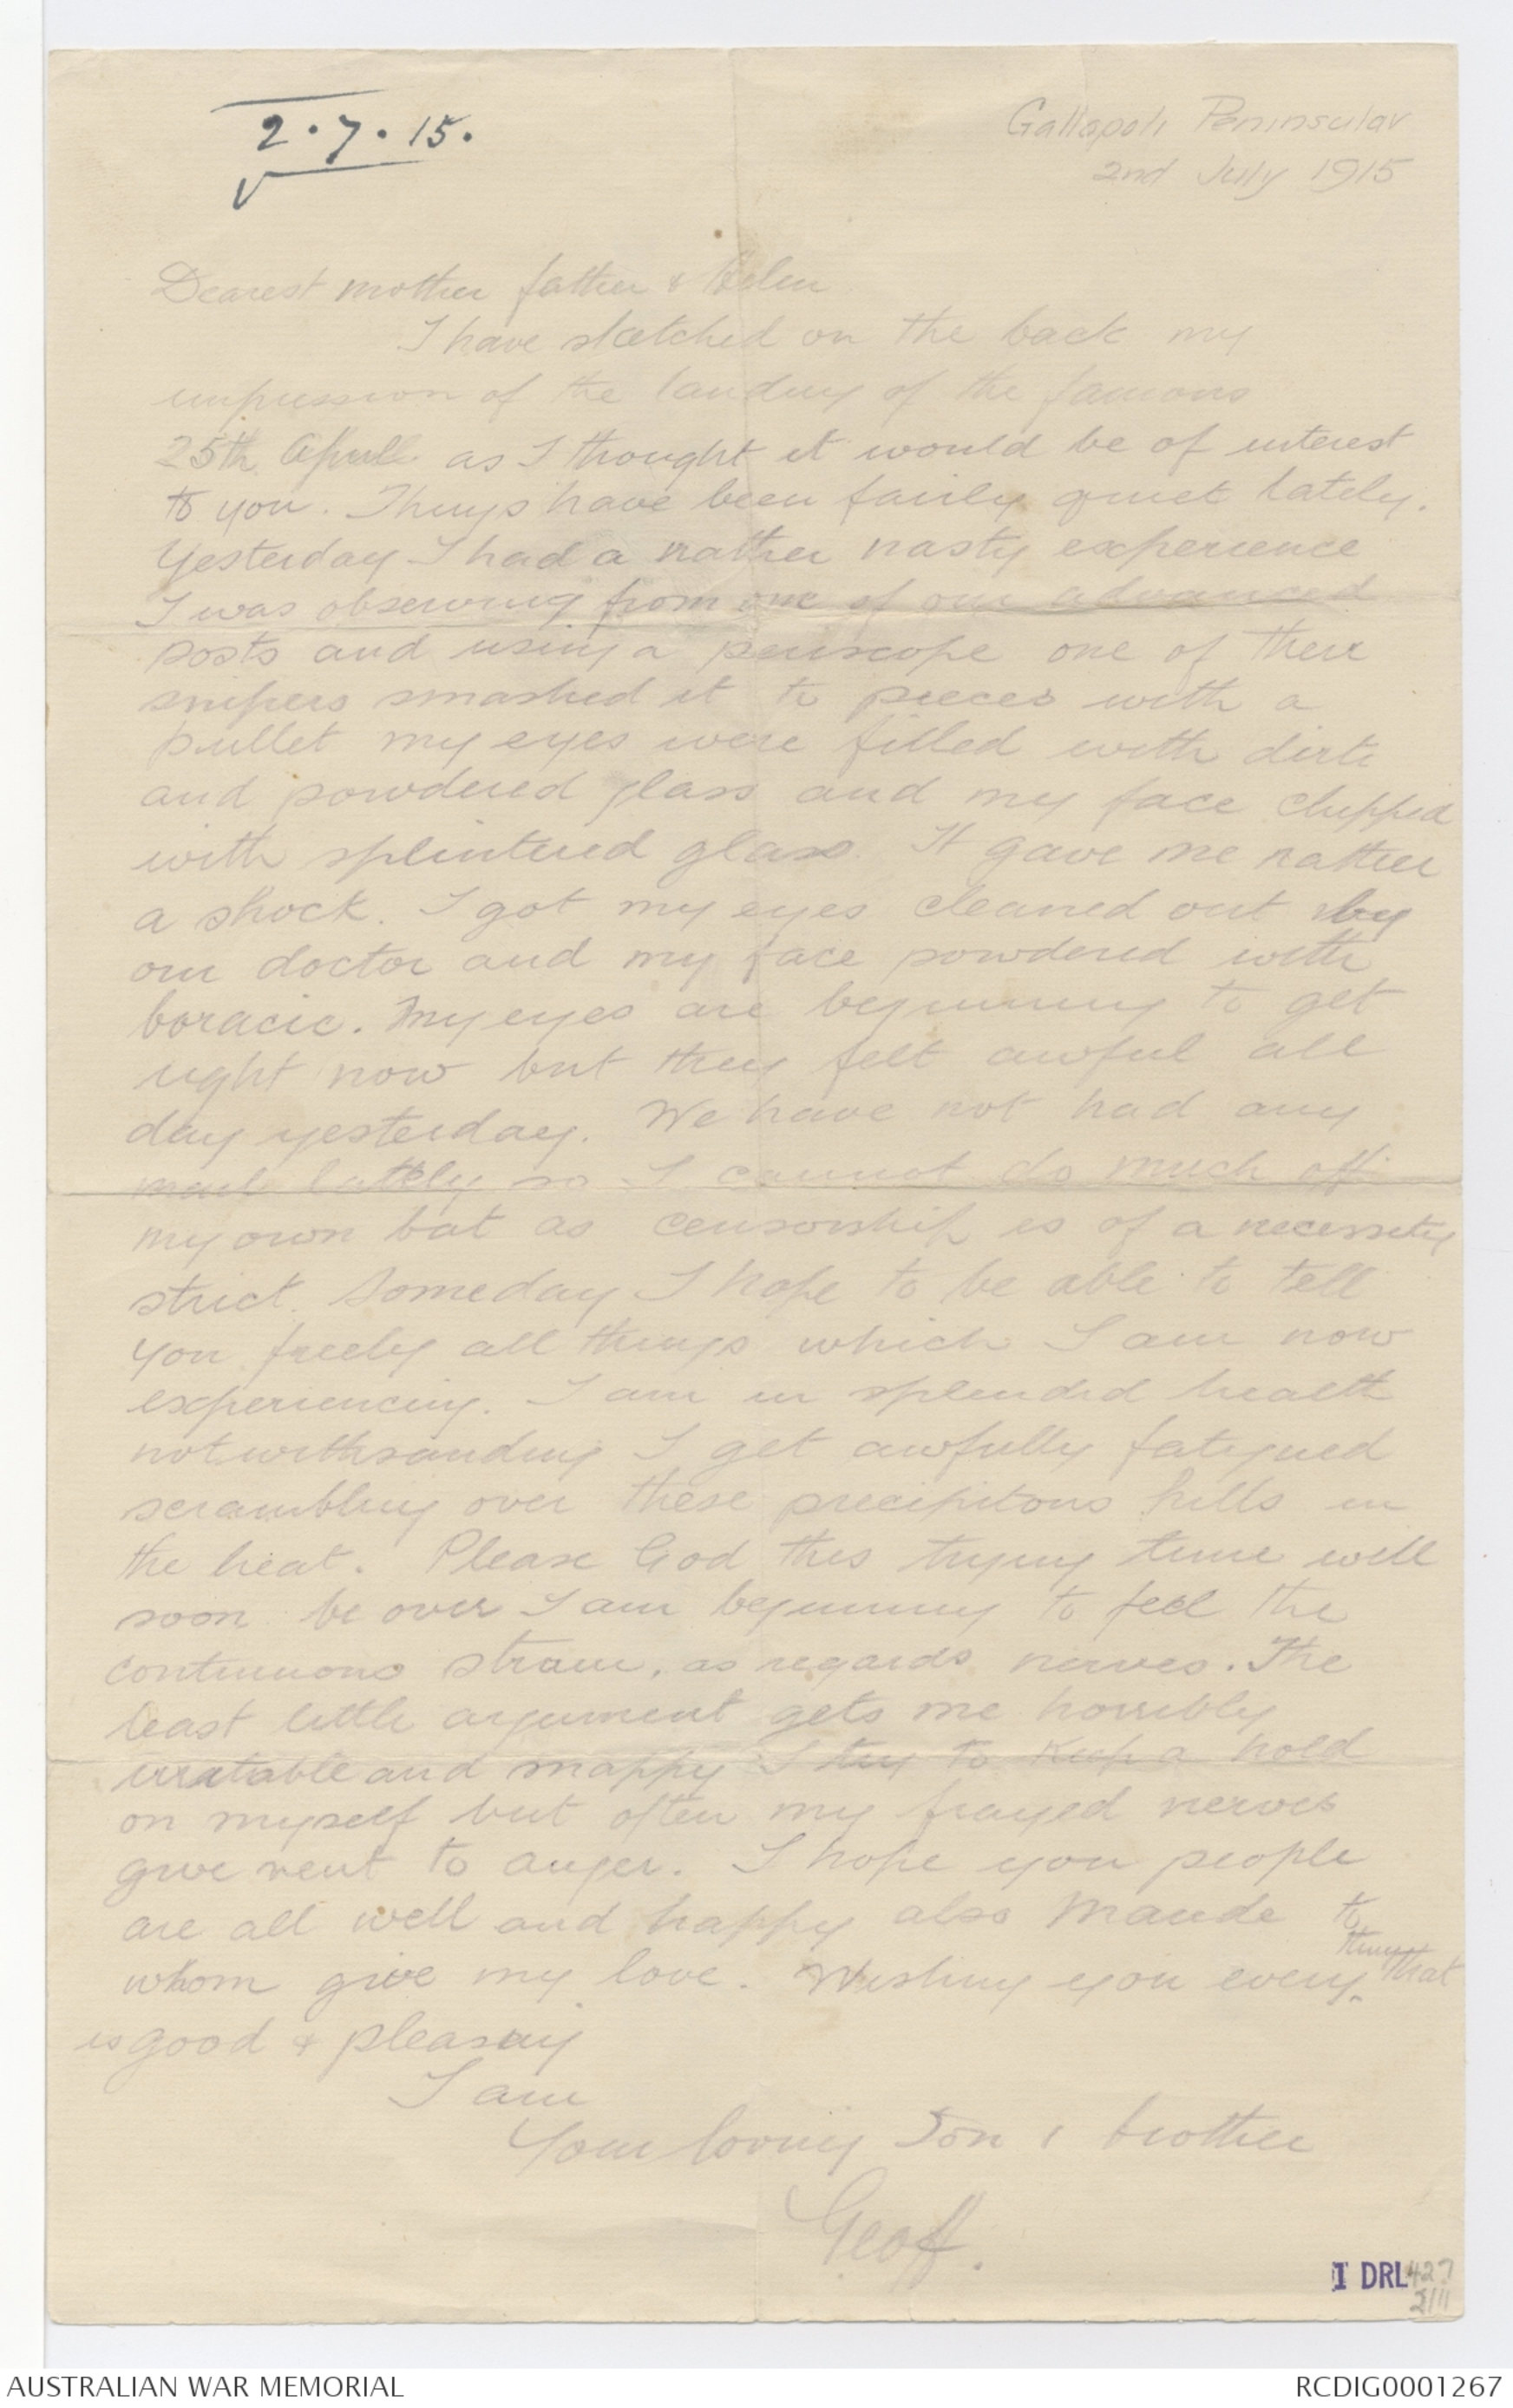 2.7.15.
Gallapoli Peninsular
2nd July 1915
Dearest mother father & Helen
I have sketched on the back my
impression of the landing of the famous
25th April as I thought it would be of interest
to you. Things have been fairly quiet lately.
Yesterday I had a rather nasty experience
I was observing from one of our advanced
posts and using a periscope one of there
snipers smashed it to pieces with a
bullet my eyes were filled with dirt
and powdered glass and my face chipped
with splintered glass. It gave me rather
a shock. I got my eyes cleaned out by
our doctor and my face powdered with
boracic. My eyes are beginning to get
right now but they felt awful all
day yesterday. We have not had any
mail lately so I cannot do much off
my own bat as censorship is of a necessity
strict. Someday I hope to be able to tell
you freely all things which I am now
experiencing. I am in splendid health
notwithsanding I get awfully fatigued
scrambling over these precipitous hills in
the heat. Please God this trying time will
soon be over I am beginning to feel the
continuous strain, as regards nerves. The
least little argument gets me horribly
irratable and snappy I try to keep a hold
on myself but often my frayed nerves
give vent to anger. I hope you people
are all well and happy also Maude to
whom give my love. Wishing you every thing that
is good & pleasing
I am
Your loving Son & brother
Geoff.
I DRL 427
2/11
AUSTRALIAN WAR MEMORIAL
RCDIG0001267